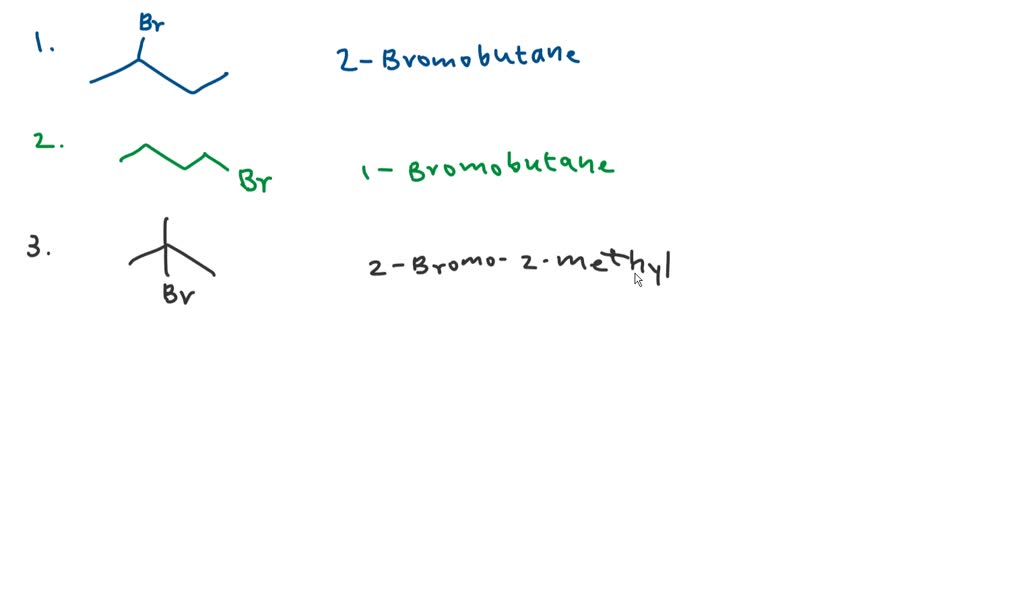 Br
1.
2-Bromobutane
2.
Br
1-Bromobutane
3.
2-Bromo-2-methyl
Br